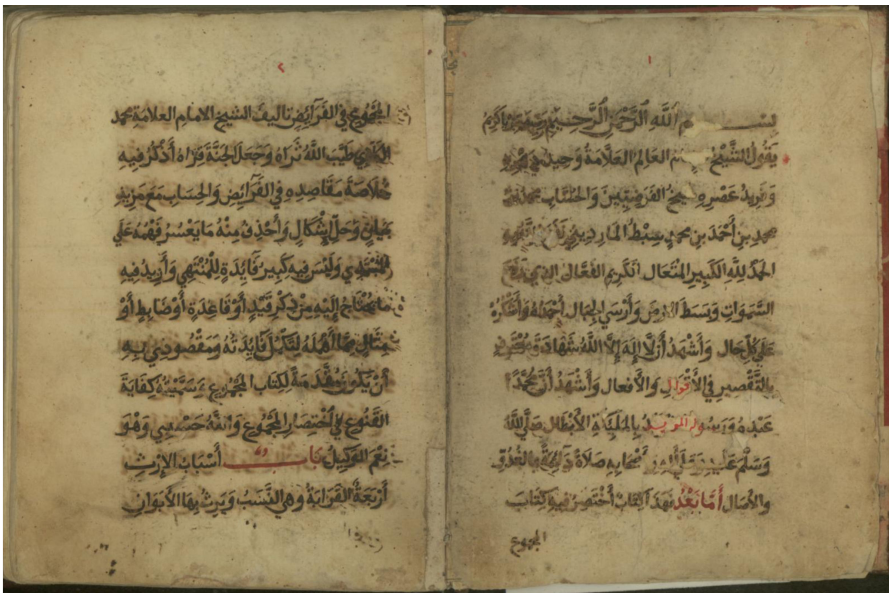 ١
بسم الله الرحمن الرحيم
يَقُولُ الشَّيْخُ العَالِم العَلَّامَةُ وَحِيدُ
وَفَرِيدُ عَصْرِهِ شَيْخُ الفَرَضِيِّينَ وَالحُسَّابِ مُحَمَّدُ بْنُ
مُحَمَّدِ بنِ أَحْمَدَ بنِ مُحَمَّدٍ سِبْطُ المَارِدِينِي
الحَمْدُ لِلَّهِ الكَبِيرِ المُتَعَالِ الكَرِيمِ الفَعَّالِ الذِي رَفَعَ
السَّمَوَاتِ وَبَسَطَ الأرضَ وَأَرْسَى الجِبَال أَحْمَدُهُ وَأَشْكُرُهُ
عَلَى كُلِّ حَالٍ وَأَشْهَدُ أَنْ لَا إِلَهَ إِلَّا اللَّهُ شَهَادَةَ
بِالتَّقْصِيرِ فِي الأَقْوَالِ وَالأَفْعَالِ وَأَشْهَدُ أَنَّ مُحَمَّدًا
عَبْدُهُ وَرَسُولُهُ المؤيدُ صَلَّى اللَّهُ
وَسَلَّمَ عَلَيْهِ وَعَلَى أَصْحَابِهِ صَلَاةً دَائِمَةً بِالغُدُوِّ
وَالآصَالِ أَمَّا بَعْدُ فَهَذَا كِتَابٌ أَخْتَصِرُ فِيهِ كِتَابَ
المجموع
٢
المَجْمُوعِ فِي الفَرَائِضِ تَالِيفَ الشيخ الامام العلامة محمد
الكلائي طَيَّبَ اللَّهُ ثَرَاهُ وَجَعَلَ الجَنَّةَ قِرَاهُ أَذْكُرُ فِيهِ
خُلَاصَةَ مَقَاصِدِهِ فِي الفَرَائِضِ وَالحِسَابِ مَعَ مَزِيدِ
بَيَانٍ وَحَلِّ إِشْكَالٍ وَأَحْذِفُ مِنْهُ مَا يَعْسُرُ فَهْمُهُ عَلَى
المُبْتَدِي وَلَيْسَ فِيهِ كَبِيرُ فَائِدَةٍ لِلْمُنْتَهِي وَأَزِيدُ فِيهِ
مَا يُحْتَاجُ إِلَيْهِ مِنْ ذِكْرِ قَيْدٍ أَوْ قَاعِدَةٍ أَوْ ضَابِطٍ أَوْ
مِثَالٍ مِمَّا أَهْمَلَهُ لِتَكْمُلَ فَائِدَتُهُ وَمَقْصُودِي بِهِ
أَنْ يَكُونَ مُقَدِّمَةً لِكِتَابِ المَجْمُوعِ وَسَمَّيْتُهُ كِفَايَةَ
القَنُوعِ فِي اخْتِصَارِ المَجْمُوعِ وَاللَّهُ حَسْبِي وَهُوَ
نِعْمَ الوَكِيلُ بَاب أَسْبَابُ الإِرْثِ
أَرْبَعَةٌ القَرَابَةُ وَهِيَ النَّسَبُ وَيَرِثُ بِهَا الأَبَوَانِ